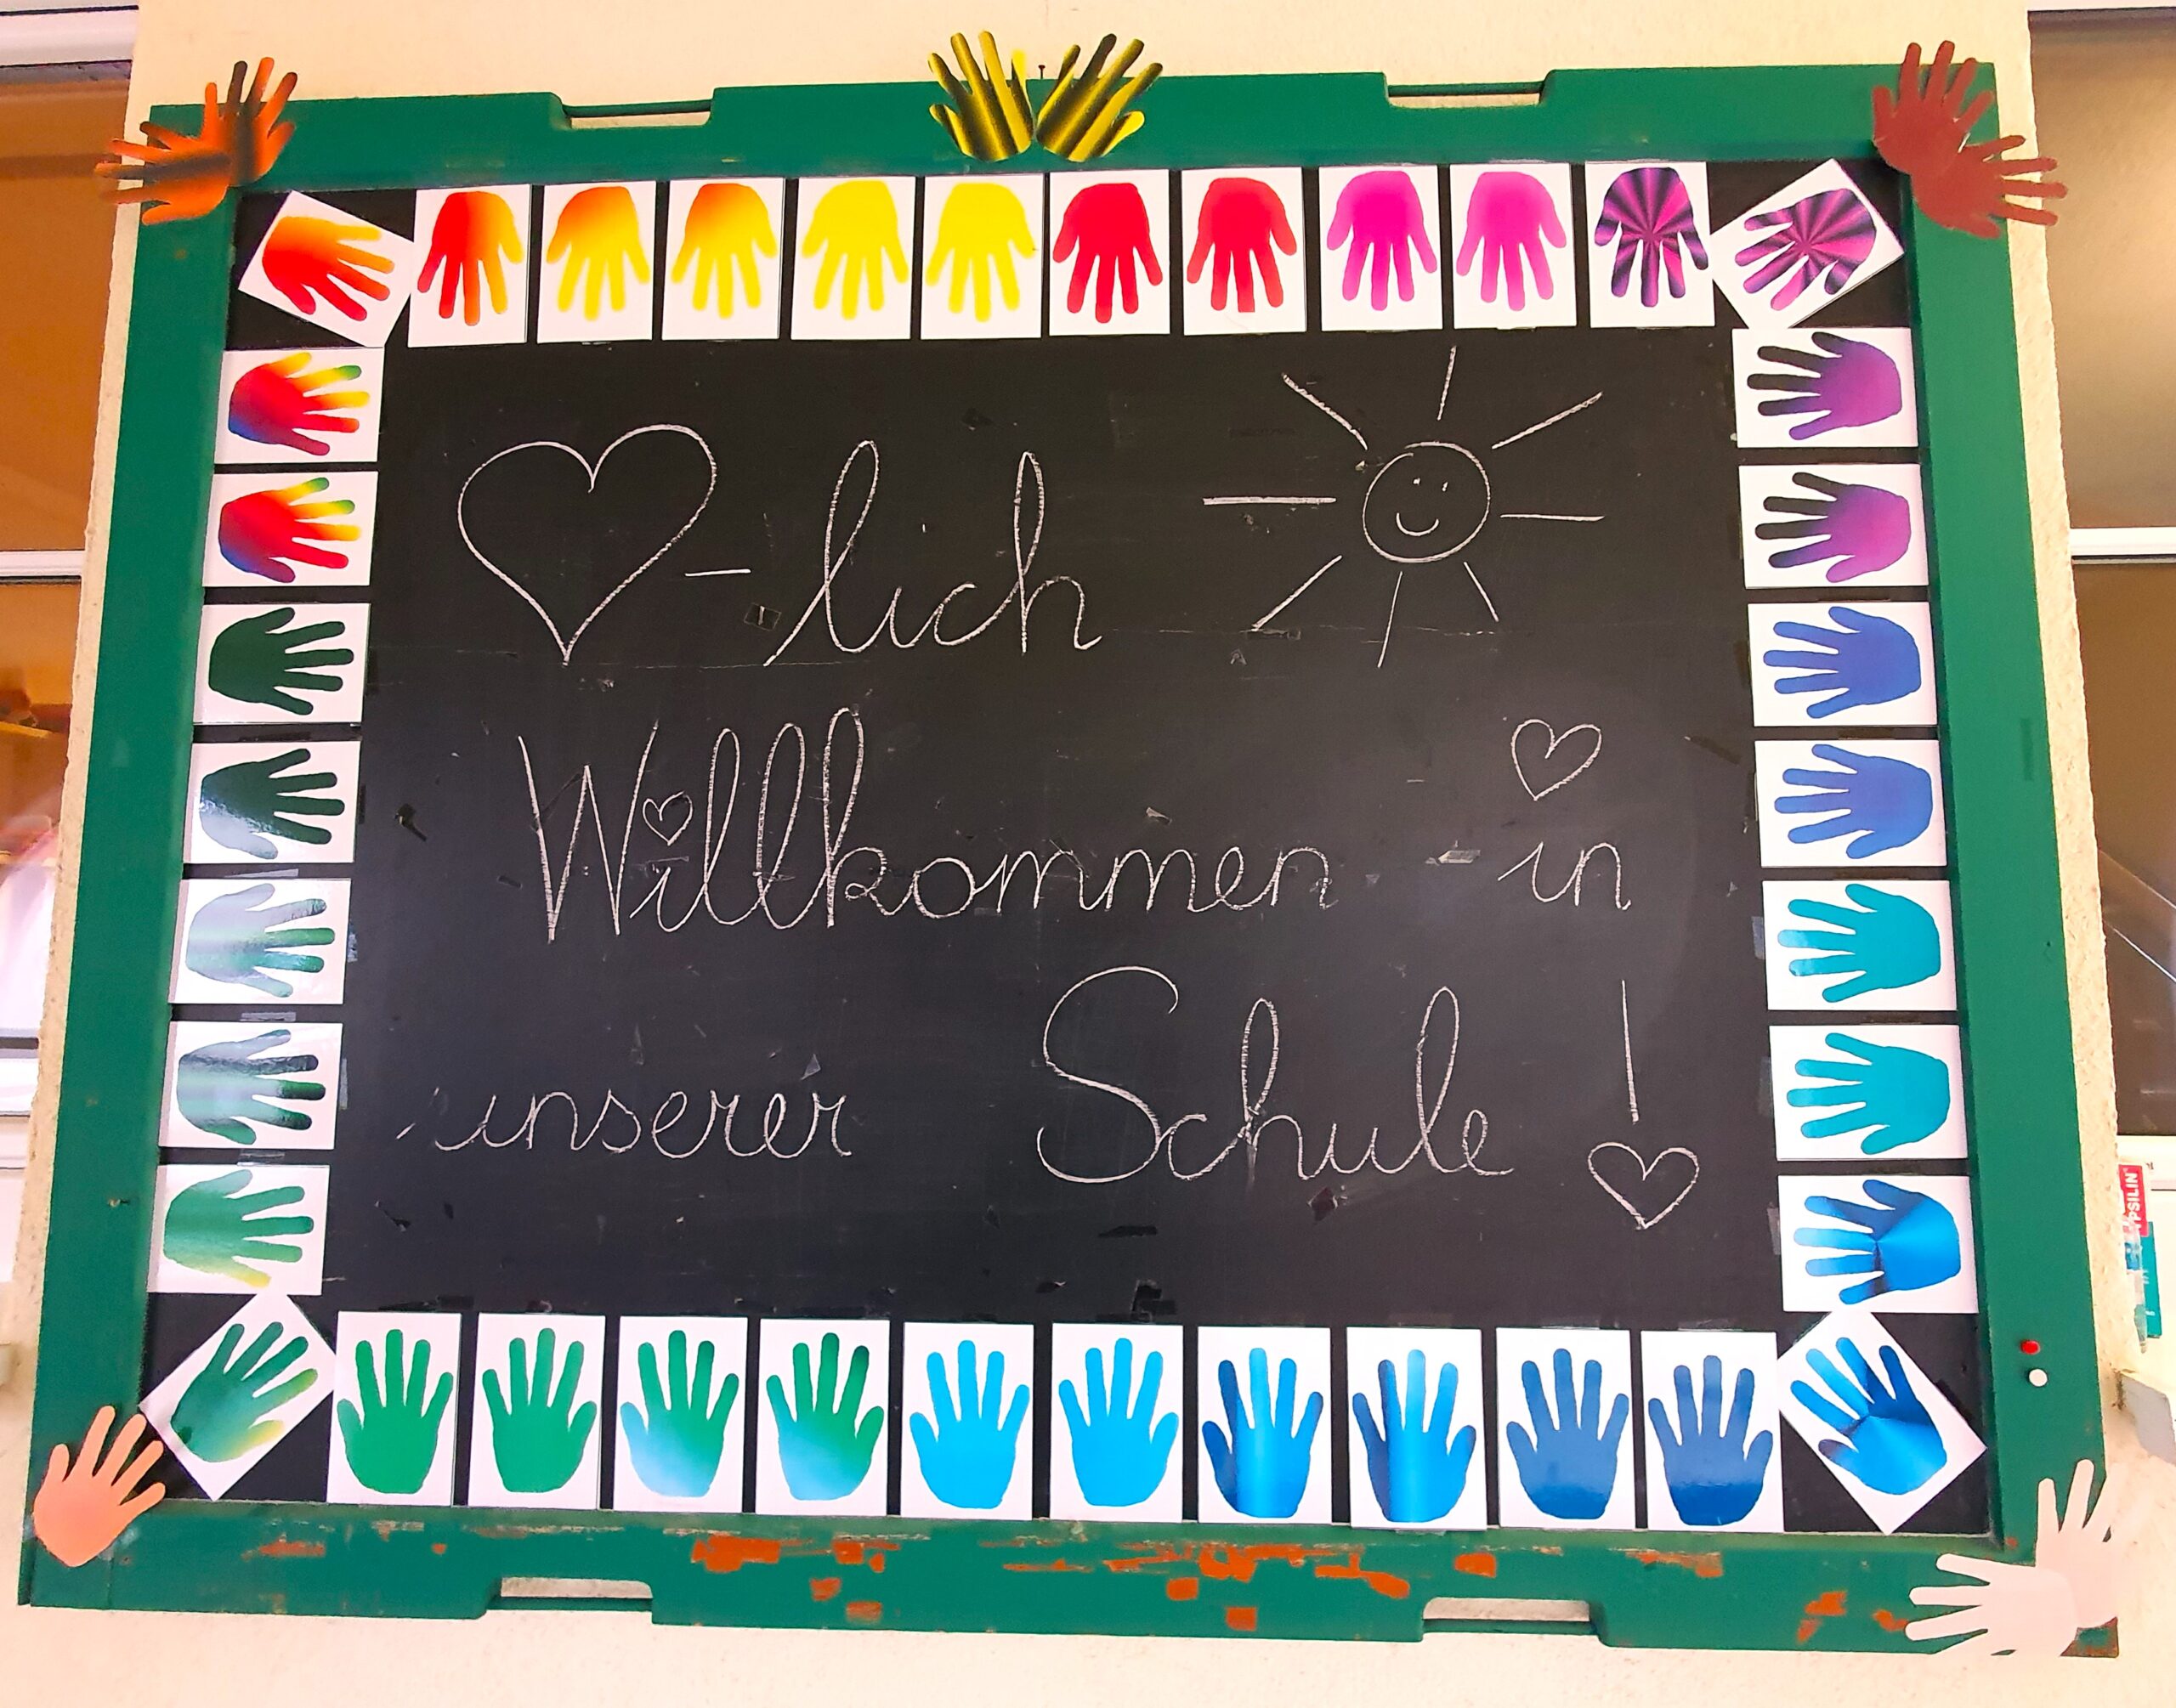 ♡-lich
Willkommen in
unserer Schule!
PSILIN